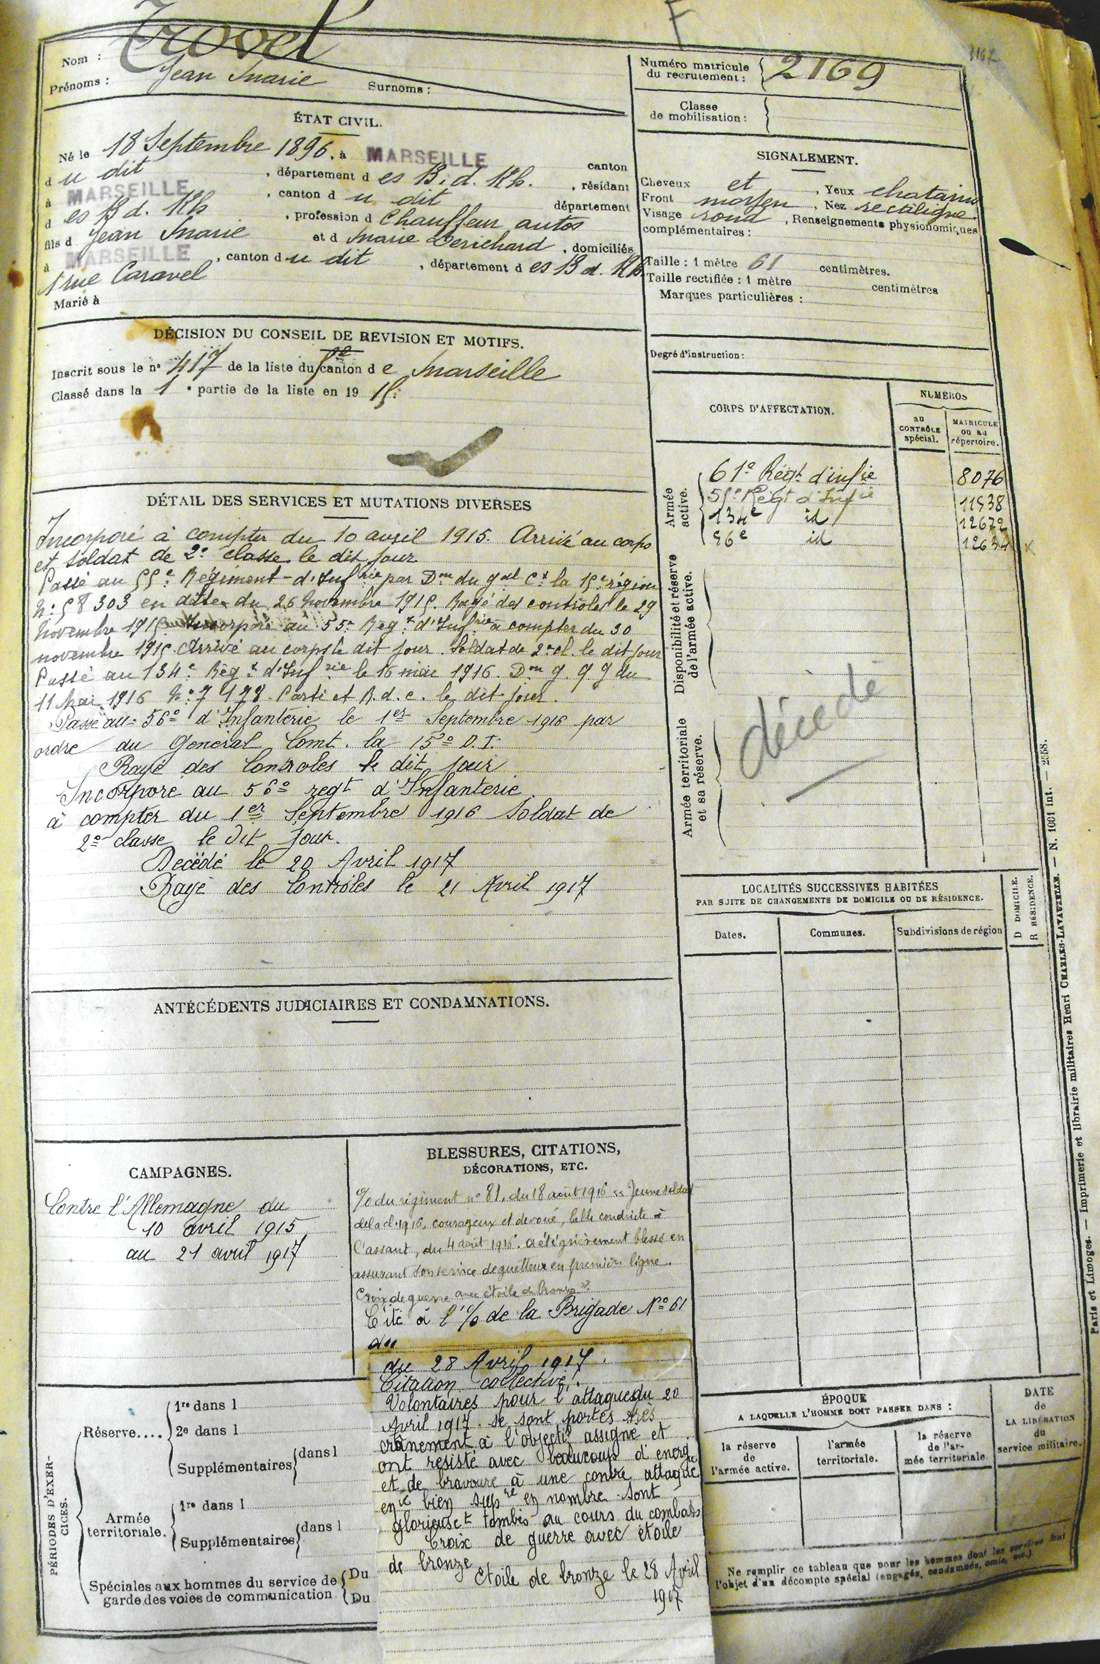 F
1162
Nom : Trovel
Prénoms : Jean Marie Surnoms :
Numéro matricule du recrutement : 2169
Classe de mobilisation :
ÉTAT CIVIL.
Né le 18 Septembre 1896, à MARSEILLE canton
d u dit, département d es B. d. Rh., résidant
à MARSEILLE, canton d u dit département
d es B d. Rh, profession d Chauffeur autos
fils d Jean Marie et d Marie Derichard, domiciliés
à MARSEILLE, canton d u dit, département d es B d. Rh.
1 rue Caravel
Marié à
SIGNALEMENT.
Cheveux et, Yeux chatains
Front moyen, Nez rectiligne
Visage rond, Renseignements physionomiques
complémentaires :
Taille : 1 mètre 61 centimètres.
Taille rectifiée : 1 mètre centimètres
Marques particulières :
Degré d'instruction :
DÉCISION DU CONSEIL DE REVISION ET MOTIFS.
Inscrit sous le n° 417 de la liste du canton d e Marseille
Classé dans la 1e partie de la liste en 19 15.
CORPS D'AFFECTATION.
NUMÉROS
AU CONTRÔLE spécial.
MATRICULE OU AU répertoire.
Armée active.
61e Régt d'infie 8076
55e Régt d'Infie 11838
134e id 12672
56e id 12634 x
Disponibilité et réserve de l'armée active.
Armée territoriale et sa réserve.
décédé
DÉTAIL DES SERVICES ET MUTATIONS DIVERSES
Incorporé à compter du 10 avril 1915. Arrivé au corps
et soldat de 2e classe le dit jour
Passé au 55e Régiment d'Infrie par Don du gral Ct la 15e région
No 58303 en date du 26 Novembre 1915 Rayé des controles le 29
Novembre 1915 Incorporé au 55e Regt d'Infrie à compter du 30
novembre 1915 Arrivé au corps le dit jour. Soldat de 2e cl. le dit jour
Passé au 134e Regt d'Infrie le 16 mai 1916. Don g. q g du
11 Mai 1916 No 7479. Parti et R.d.c. le dit jour.
Passé au 56e d'Infanterie le 1er Septembre 1916 par
ordre du General Comt. la 15e D.I.
Rayé des Controles le dit jour
Incorporé au 56e regt d'Infanterie
à compter du 1er Septembre 1916 Soldat de
2e classe le dit jour.
Decédé le 20 Avril 1917
Rayé des Controles le 21 Avril 1917
LOCALITÉS SUCCESSIVES HABITÉES
PAR SUITE DE CHANGEMENTS DE DOMICILE OU DE RÉSIDENCE.
Dates. Communes. Subdivisions de région
D DOMICILE.
R RÉSIDENCE.
ANTÉCÉDENTS JUDICIAIRES ET CONDAMNATIONS.
CAMPAGNES.
Contre l'Allemagne du
10 avril 1915
au 21 avril 1917
BLESSURES, CITATIONS,
DÉCORATIONS, ETC.
% du régiment no 81. du 18 août 1916 "Jeune soldat
de la cl. 1916, courageux et dévoué, belle conduite à
l'assaut, du 4 août 1916. a été grièvement blessé en
assurant son service de guetteur en première ligne.
Croix de guerre avec étoile de bronze"
Cité à l'% de la Brigade No 61
du
du 28 Avril 1917.
Citation collective.
Volontaires pour l'attaque du 20
Avril 1917. Se sont portés très
crânement à l'objectif assigné et
ont resisté avec beaucoup d'énergie
et de bravoure à une contre attaque
enie bien supre en nombre. Sont
glorieuset tombés au cours du combats
Croix de guerre avec étoile
de bronze
Etoile de bronze le 28 Avril
1917
PÉRIODES D'EXERCICES.
Réserve....
1re dans l
2e dans l
Supplémentaires dans l
Armée territoriale.
1re dans l
Supplémentaires dans l
Spéciales aux hommes du service de garde des voies de communication
Du
Du
ÉPOQUE
A LAQUELLE L'HOMME DOIT PASSER DANS :
la réserve de l'armée active.
l'armée territoriale.
la réserve de l'armée territoriale.
DATE de LA LIBÉRATION du service militaire.
Ne remplir ce tableau que pour les hommes dont les services font
l'objet d'un décompte spécial (engagés, condamnés, omis, etc.)
Paris et Limoges. — Imprimerie et librairie militaires Henri CHARLES-LAVAUZELLE. — N. 1001 int. — 2558.